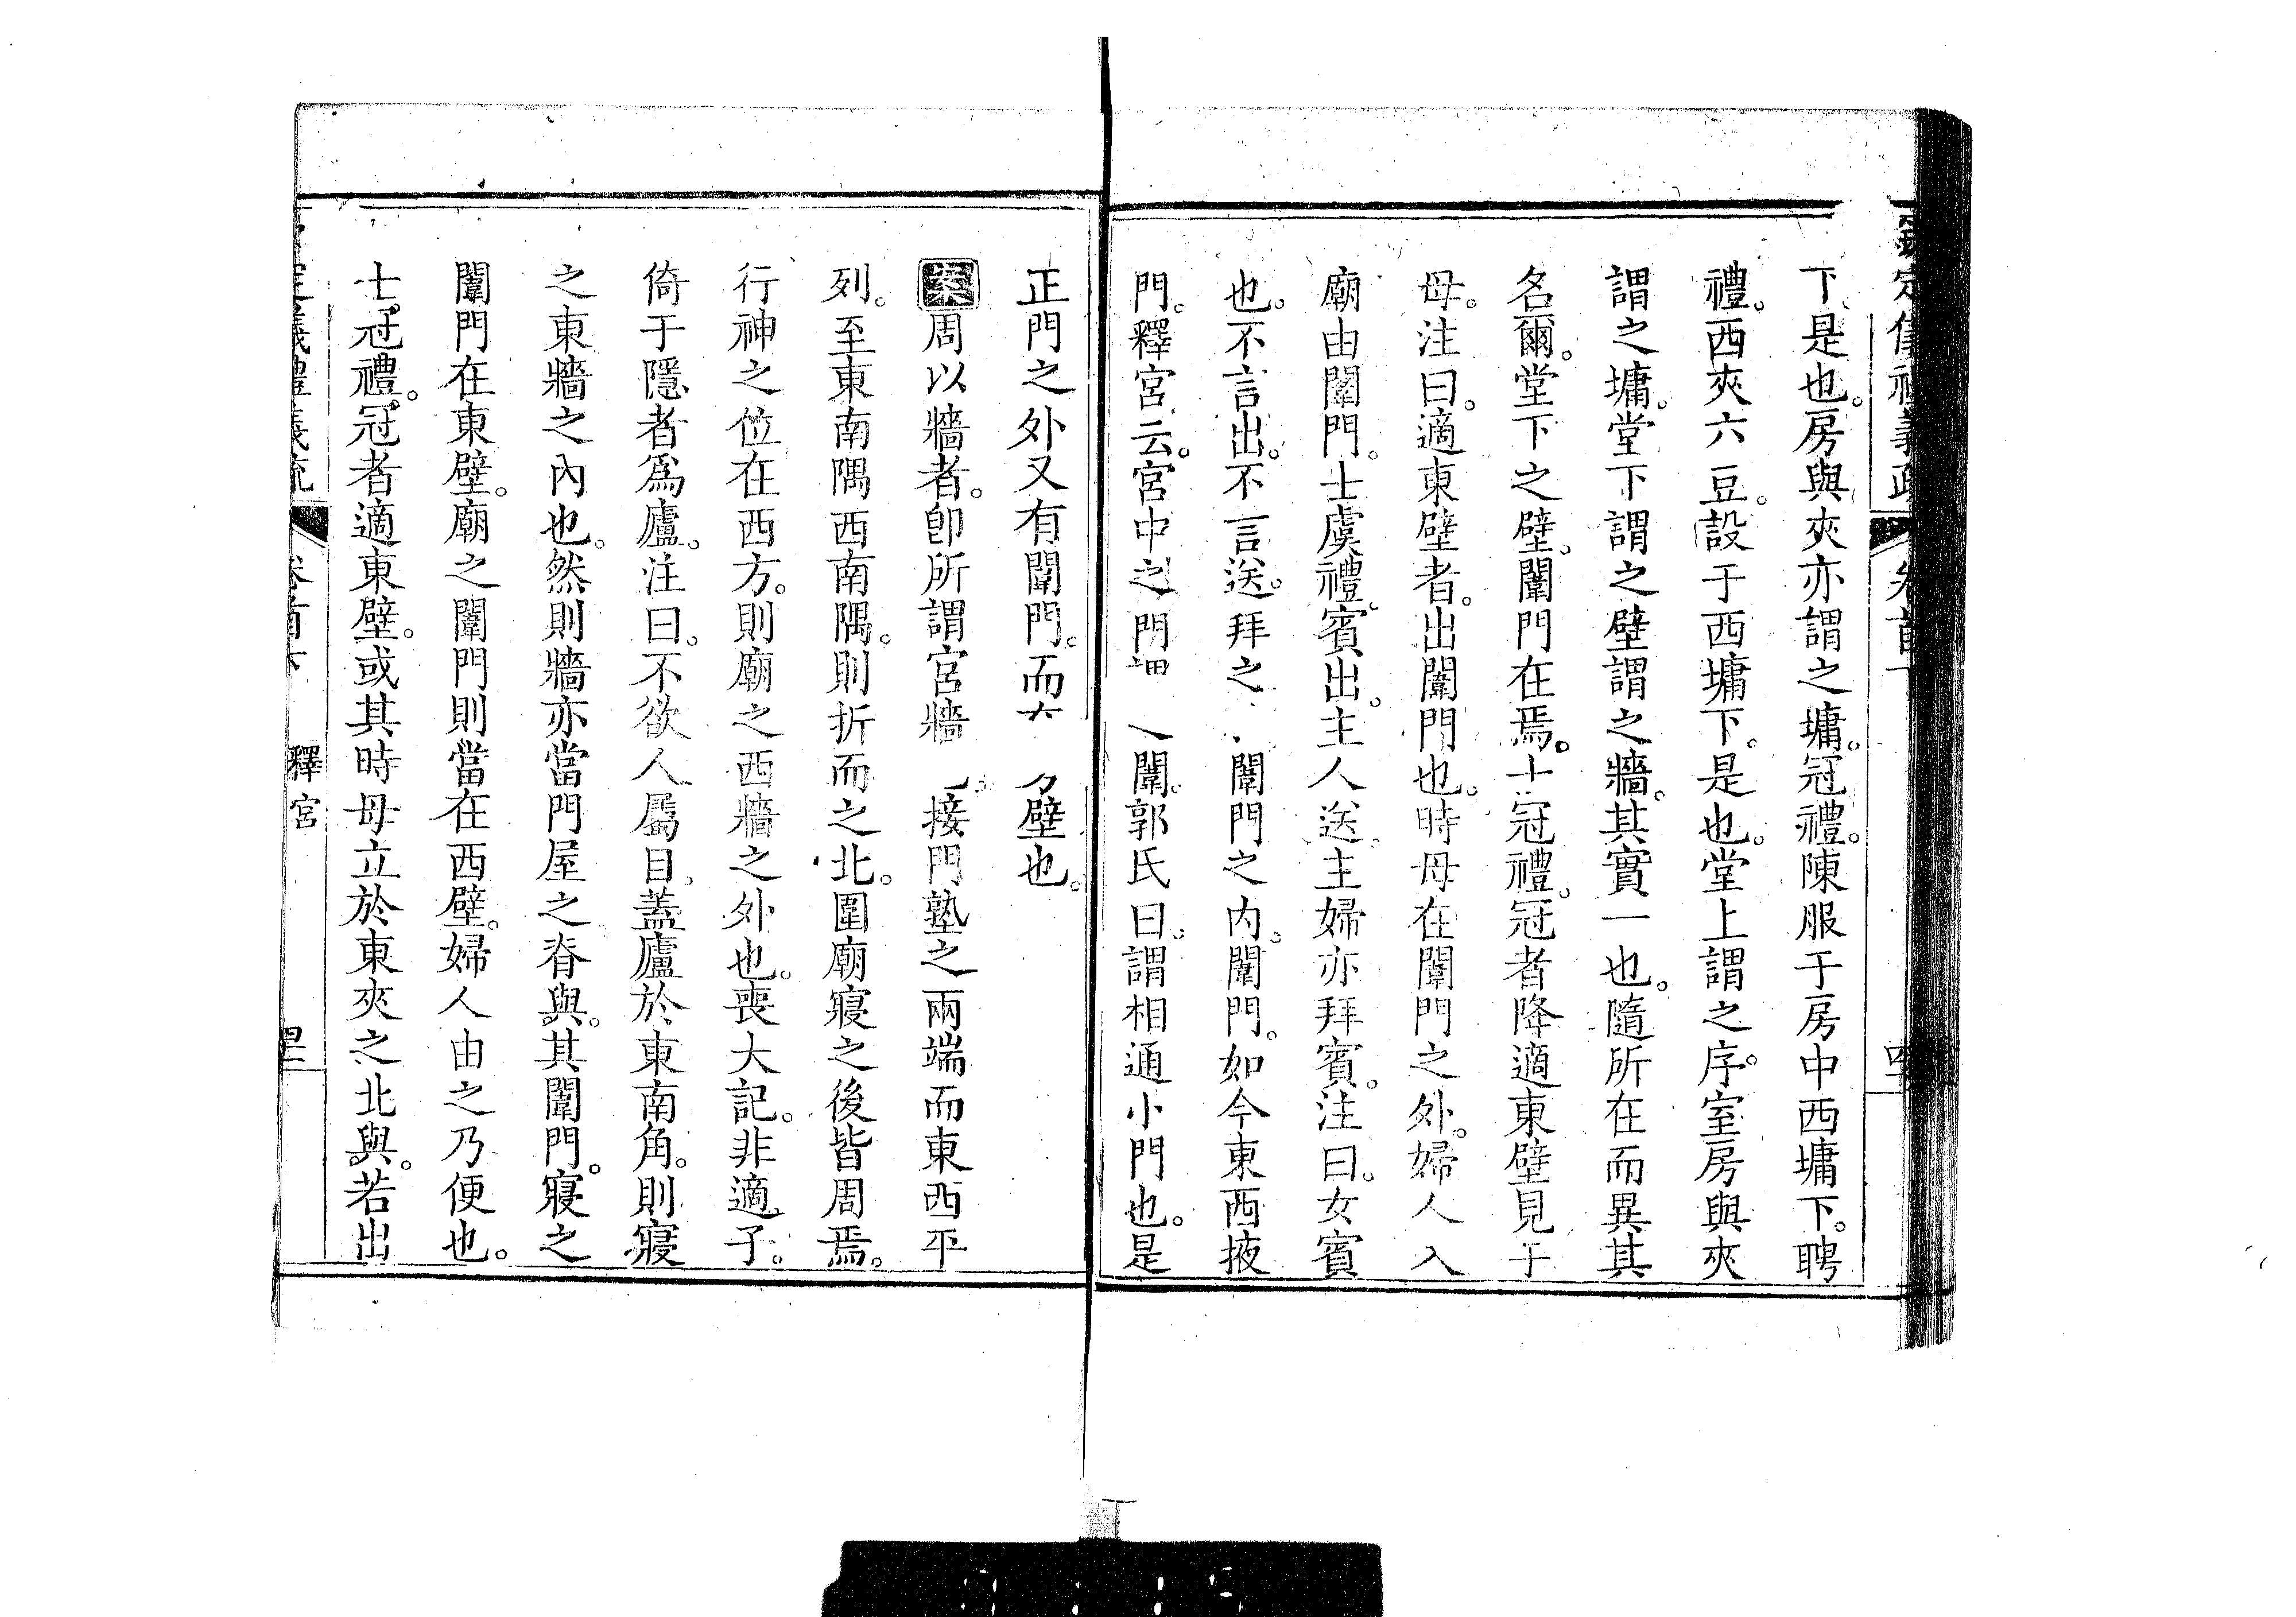 欽定儀禮義疏 卷首下
下是也。房與夾亦謂之墉。冠禮。陳服于房中西墉下。聘
禮。西夾六豆。設于西墉下。是也。堂上謂之序。室房與夾
謂之墉。堂下謂之壁謂之牆。其實一也。隨所在而異其
名爾。堂下之壁。闈門在焉。士冠禮。冠者降適東壁見于
母。注曰。適東壁者。出闈門也。時母在闈門之外。婦人入
廟由闈門。士虞禮。賓出。主人送。主婦亦拜賓。注曰。女賓
也。不言出。不言送。拜之 闈門之內。闈門。如今東西掖
門。釋宮云。宮中之門謂 闈。郭氏曰。謂相通小門也。是
正門之外又有闈門。而 壁也。
案周以牆者。卽所謂宮牆 接門塾之兩端而東西平
列。至東南隅西南隅。則折而之北。圍廟寢之後皆周焉。
行神之位在西方。則廟之西牆之外也。喪大記。非適子。
倚于隱者爲廬。注曰。不欲人屬目。蓋廬於東南角。則寢
之東牆之內也。然則牆亦當門屋之脊與。其闈門。寢之
闈門在東壁。廟之闈門則當在西壁。婦人由之乃便也。
士冠禮。冠者適東壁。或其時母立於東夾之北與。若出
欽定儀禮義疏 卷首下 釋宮